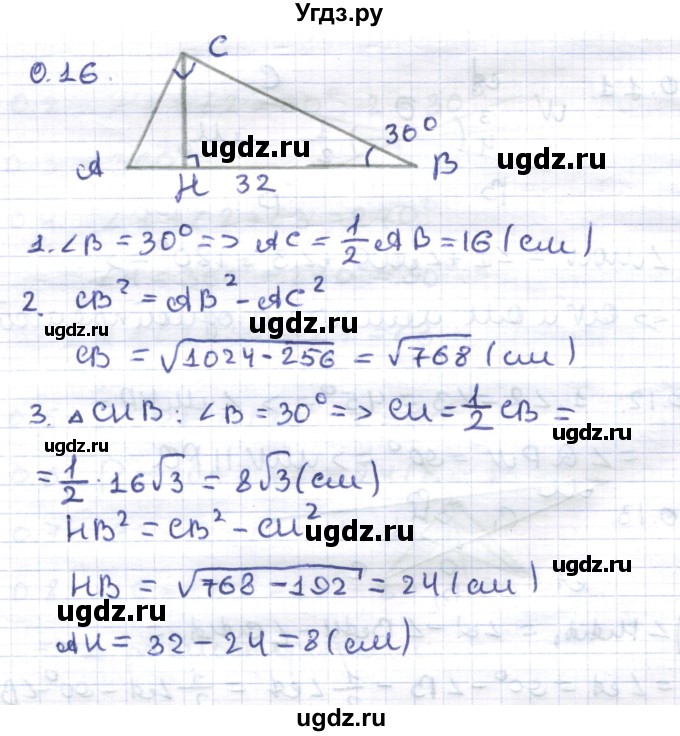 Угдз.ру
0.16.
C
30°
ugdz.ru
ugdz.ru
A
H
32
B
1. ∠B = 30° => AC = 1/2 AB = 16 (см)
ugdz.ru
2. CB² = AB² - AC²
ugdz.ru
ugdz.ru
CB = √1024-256 = √768 (см)
3. △CHB: ∠B = 30° => CH = 1/2 CB =
ugdz.ru
ugdz.ru
= 1/2 · 16√3 = 8√3 (см)
HB² = CB² - CH²
ugdz.ru
HB = √768-192 = 24 (см)
ugdz.ru
ugdz.ru
AH = 32 - 24 = 8 (см)
ugdz.ru
ugdz.ru